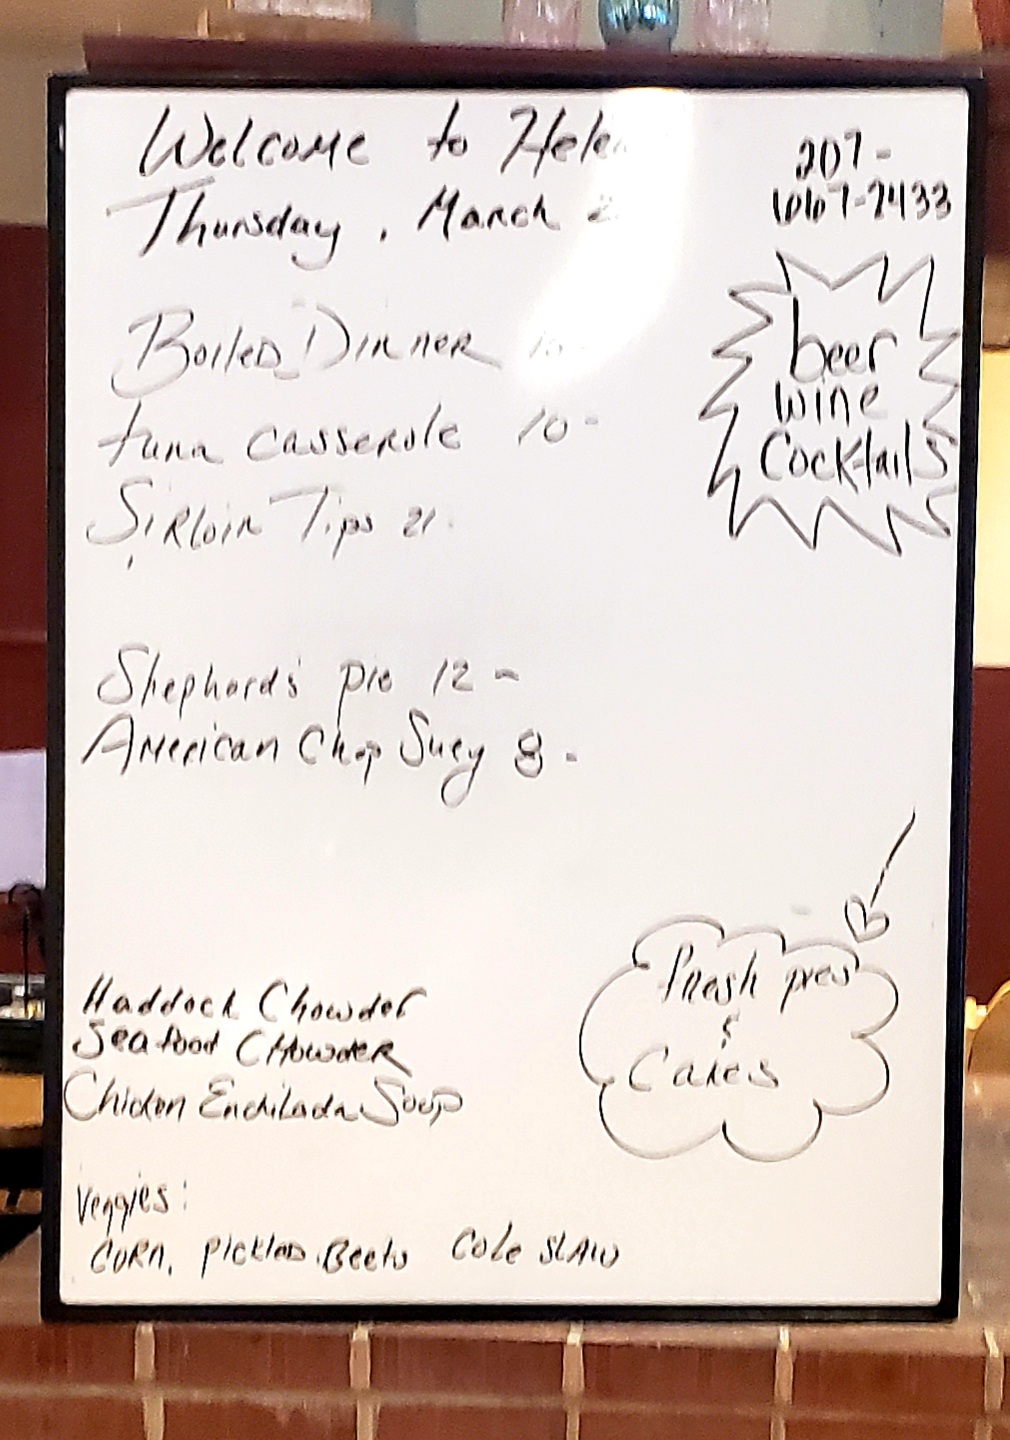 Welcome to
Thursday, March
207-
667-2433
Boiled Dinner
tuna casserole 10-
Sirloin Tips 21.
beer
wine
Cocktails
Shephard's pie 12-
American Chop Suey 8-
Haddock Chowder
Seafood Chowder
Chicken Enchilada Soup
Fresh pies
&
Cakes
Veggies:
Corn, Pickled Beets Cole Slaw